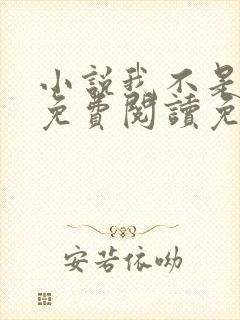 小說我不是
免費閱讀免
安若依呦